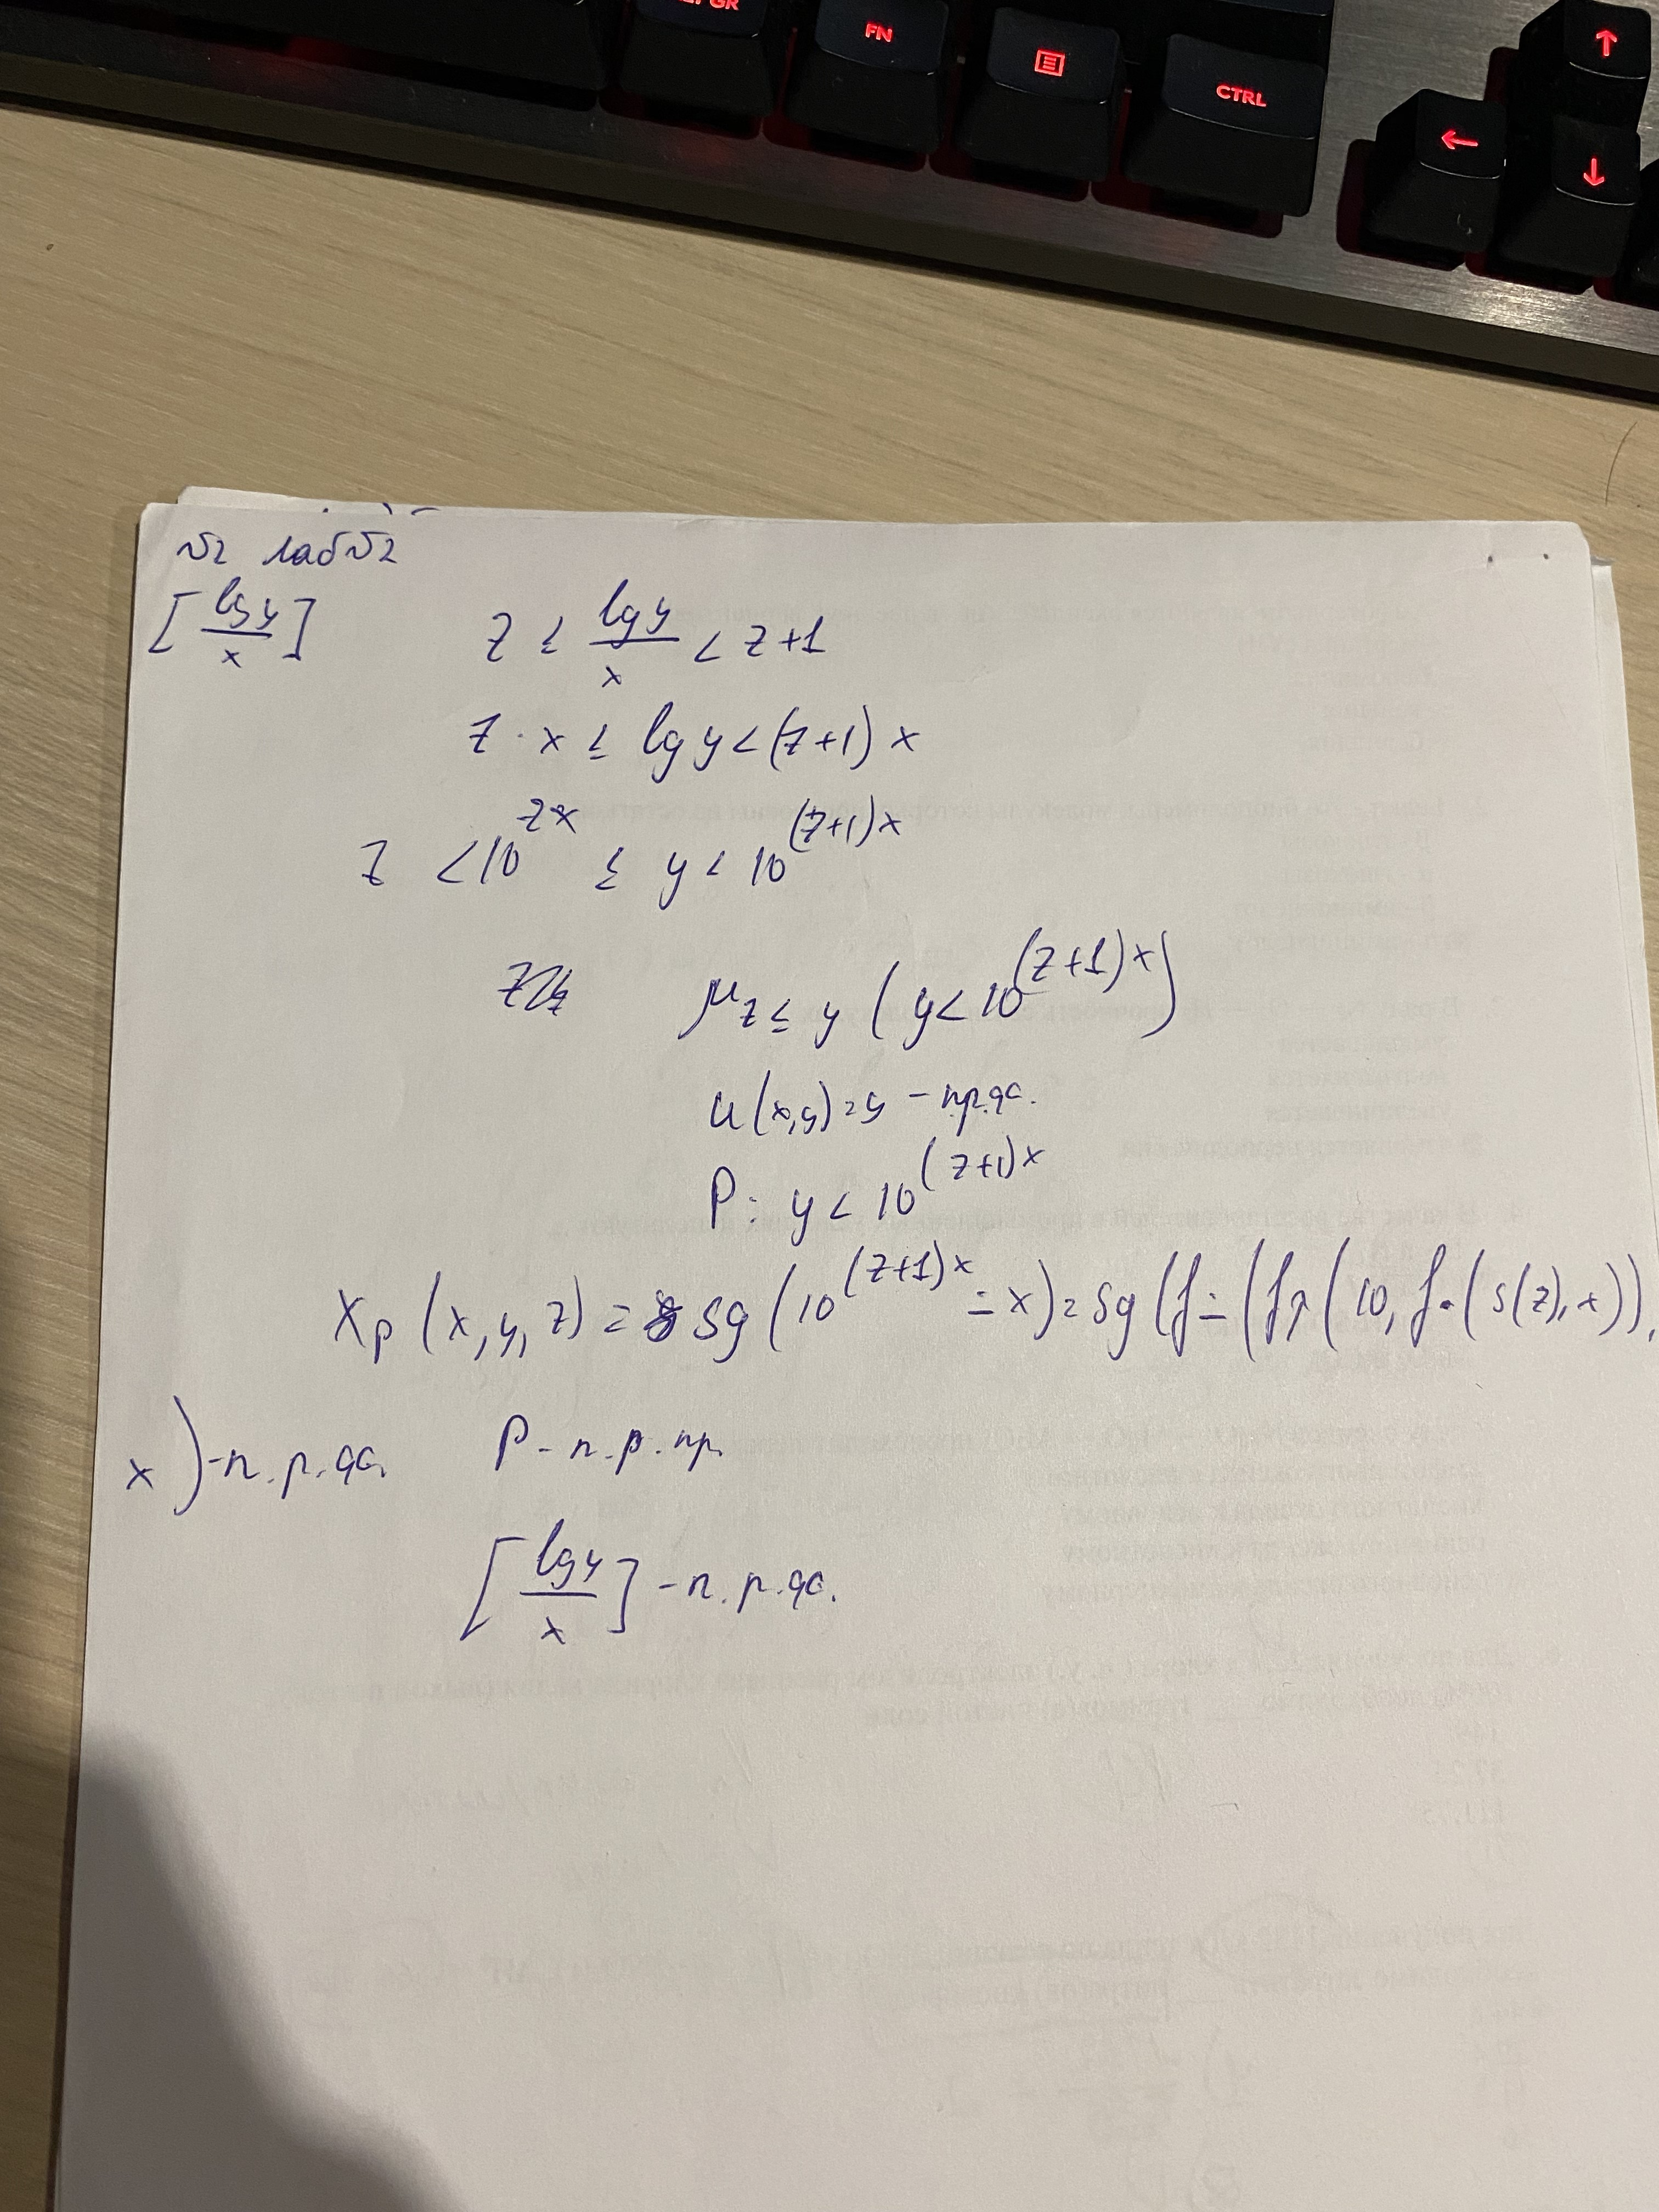 GR
FN
CTRL
№2 лаб №2
[lg y / x]   z ≤ lg y / x < z+1
z · x ≤ lg y < (z+1) x
z < 10^{zx} ≤ y < 10^{(z+1)x}
μ_{z ≤ y} (y < 10^{(z+1)x})
u(x,y) = y - пр.фс.
P: y < 10^{(z+1)x}
χ_p (x, y, z) = sg (10^{(z+1)x} ∸ x) = sg (f∸ (f↑ (10, f• (s(z), x)),
x) - п.р.фс.   P - п.р.пр.
[lg y / x] - п.р.фс.